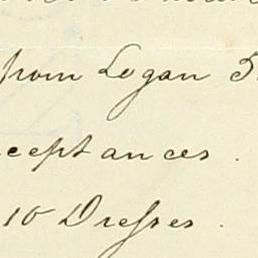 from Logan
ceptances.
10 Dresses.